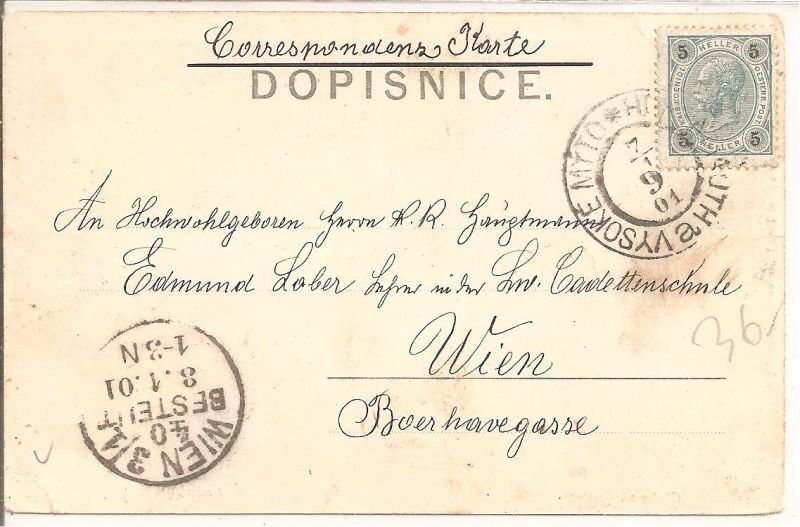 Correspondenz Karte
DOPISNICE.
5 HELLER 5
KAIS. KOENIGL. OESTERR. POST.
5 HELLER 5
VYSOKÉ MYTO * H
RUTH
9
01
An Hochwohlgeboren Herrn K. K. Hauptmann
Edmund Laber Lehrer in der Lw. Cadettenschule
Wien
Boerhavegasse
36
WIEN 3/1
40
BESTELLT
8.1.01
1-3N